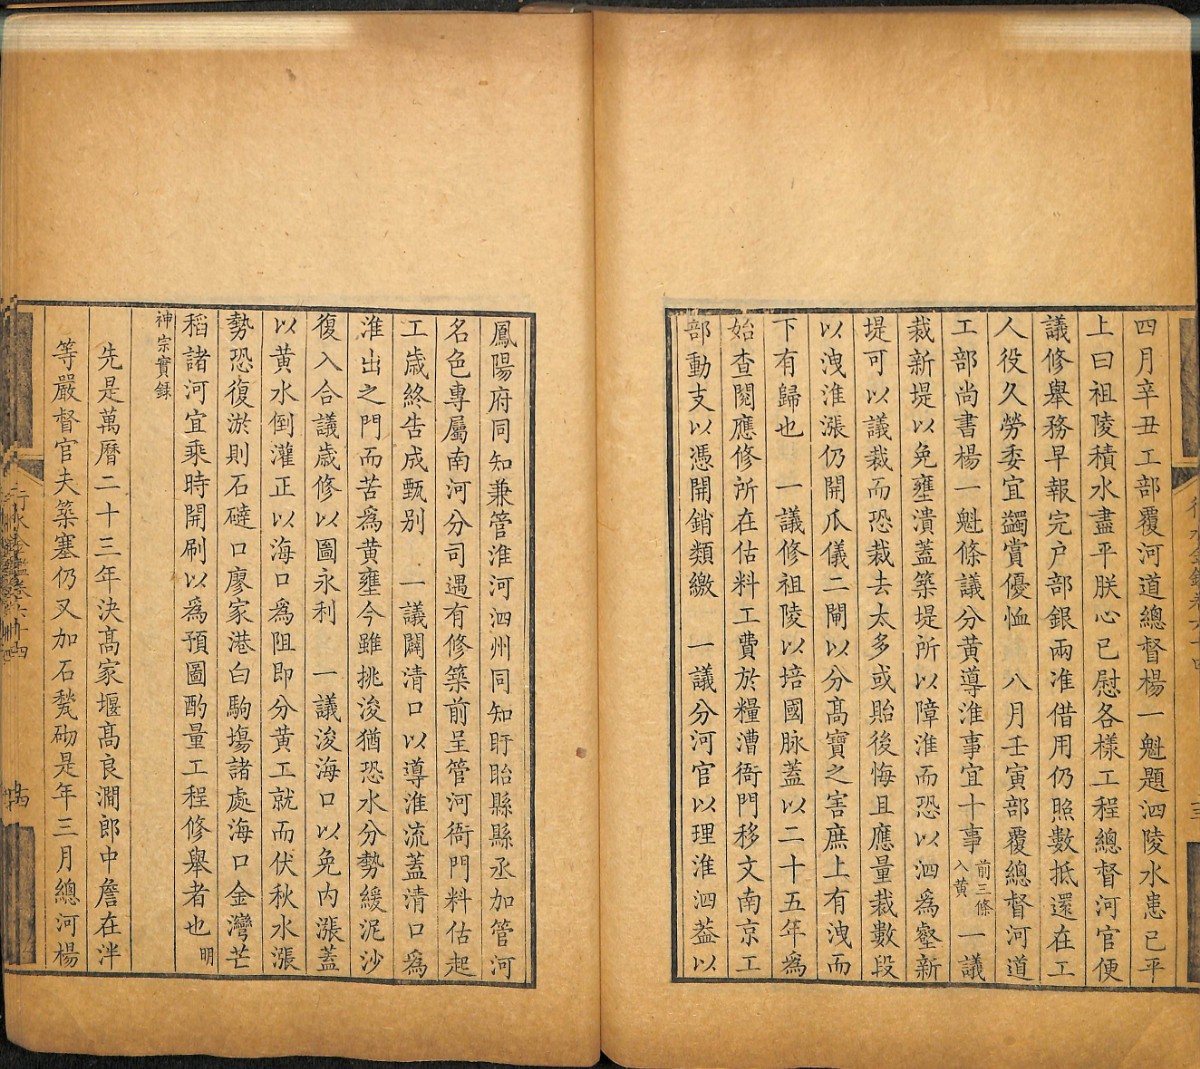 四月辛丑工部覆河道總督楊一魁題泗陵水患已平
上曰祖陵積水盡平朕心已慰各樣工程總督河官便
議修舉務早報完户部銀兩准借用仍照數抵還在工
人役久勞委宜蠲賞優恤　八月壬寅部覆總督河道
工部尚書楊一魁條議分黄導淮事宜十事前三條入黄一議
裁新堤以免壅潰蓋築堤所以障淮而恐以泗爲壑新
堤可以議裁而恐裁去太多或貽後悔且應量裁數段
以洩淮漲仍開瓜儀二閘以分髙寶之害庶上有洩而
下有歸也　一議修祖陵以培國脉蓋以二十五年爲
始查閲應修所在估料工費於糧漕衙門移文南京工
部動支以憑開銷類繳　一議分河官以理淮泗葢以
鳳陽府同知兼管淮河泗州同知盱眙縣縣丞加管河
名色專屬南河分司遇有修築前呈管河衙門料估起
工歳終告成甄别　一議闢清口以導淮流蓋清口爲
淮出之門而苦爲黄壅今雖挑浚猶恐水分勢緩泥沙
復入合議歳修以圖永利　一議浚海口以免内漲蓋
以黄水倒灌正以海口爲阻即分黄工就而伏秋水漲
勢恐復淤則石䃮口廖家港白駒塲諸處海口金灣芒
稻諸河宜乘時開刷以爲預圖酌量工程修舉者也明
神宗實録
先是萬曆二十三年決髙家堰髙良澗郎中詹在泮
等嚴督官夫築塞仍又加石甃砌是年三月總河楊